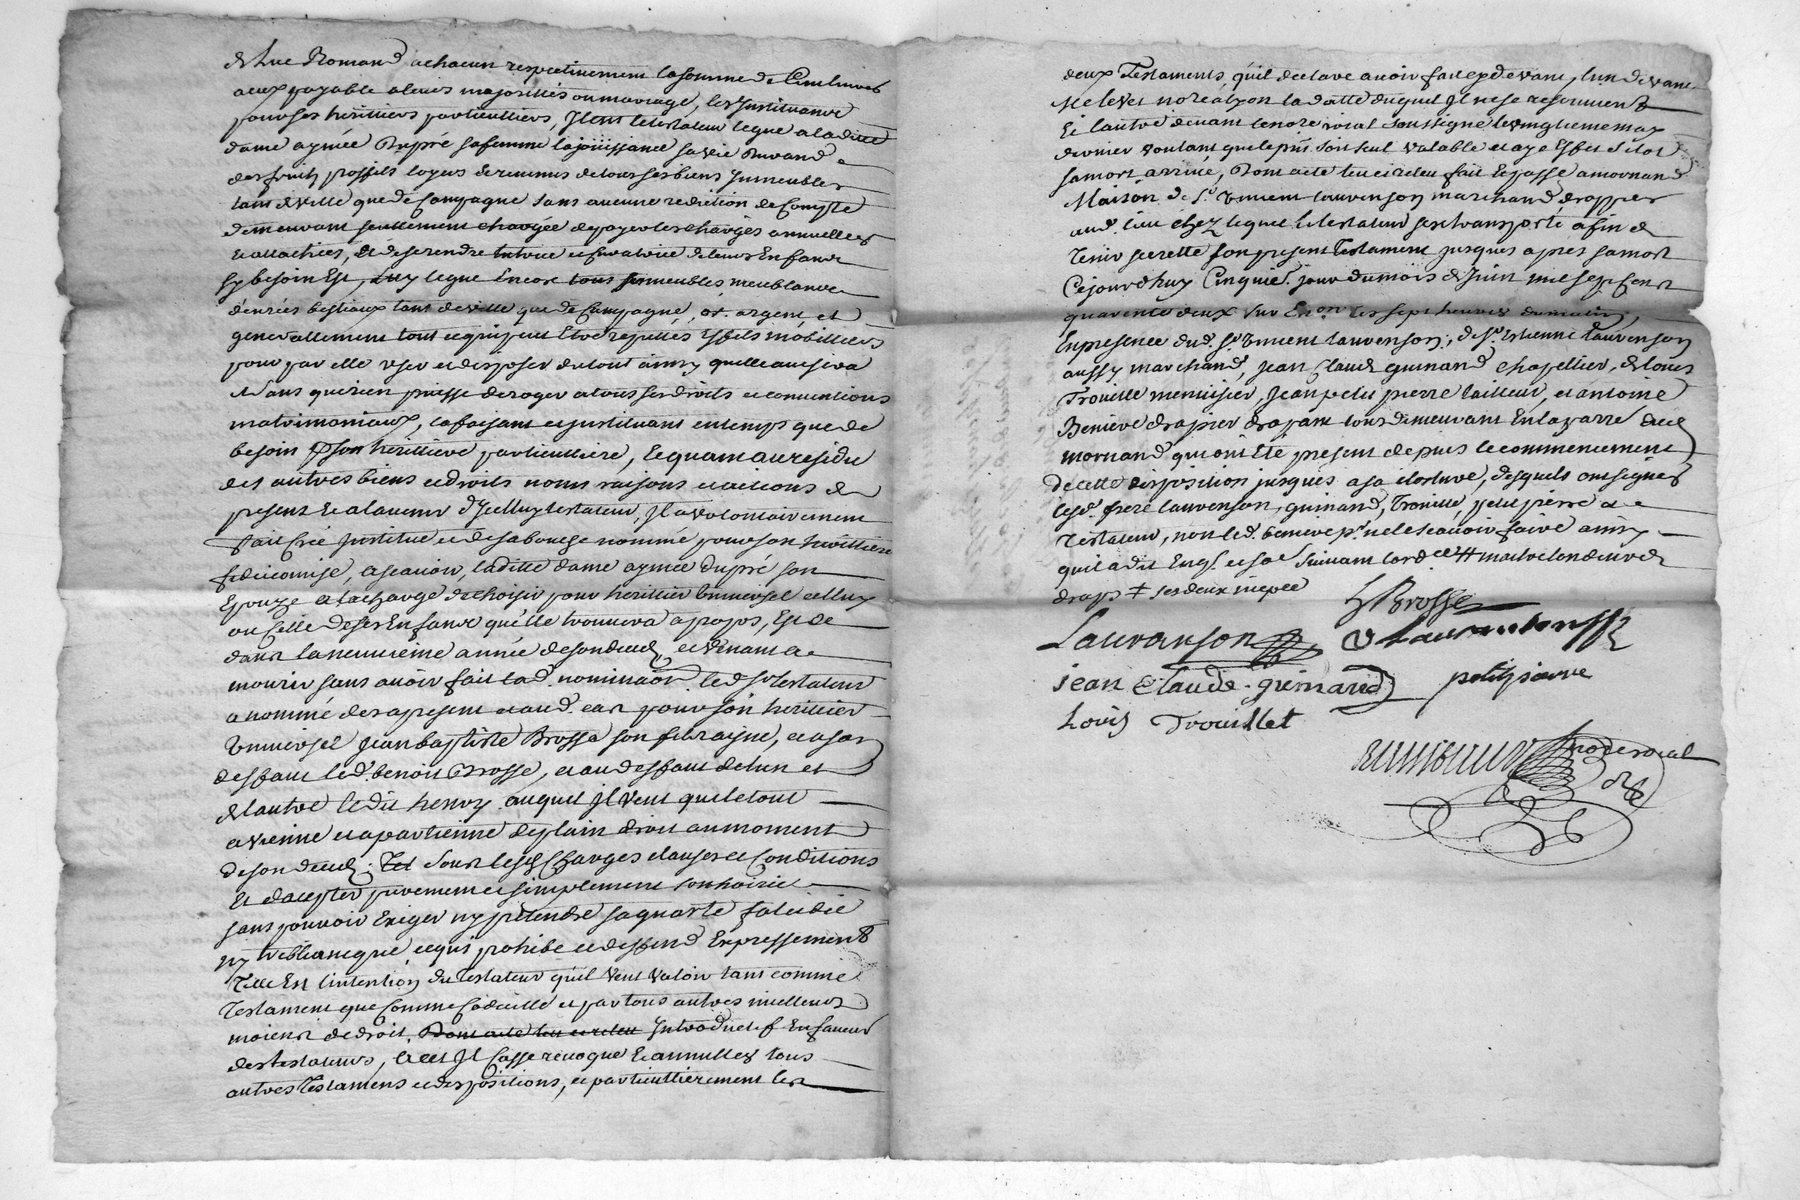 de Luc Romand a chacun respectivement la somme de Cent livres
a eux payable a leurs majorittés ou mariage, les Instituant
pour ses heritiers particulliers, Item le testateur legue a la ditte
dame aymée Dupré sa femme la joüissance sa vie Durand
des fruits proffits loyers et revenus de tous ses biens Immeubles
tant de ville que de Campagne sans aucune redition de Compte
demeurant seullement chargée de payer les charges annuelles
et attachées, et de se rendre tutrice et curatrice de leurs Enfants
sy besoin Est, Luy legue Encore tous ses meubles, meublants
denrées bestiaux tant de ville que de Campagne, or, argent et
generallement tout ce qui peut Etre reputtés Effets mobilliers
pour par elle user et disposer du tout ainsy quelle avisera
et sans que rien puisse deroger a tous ses droits et conventions
matrimoniaux, la faisant et instituant en temps que de
besoin son herittiere particulliere, Et quant au residu
des autres biens et droits noms raisons et actions
present et a l'avenir d'Icelluy testateur, Il a volontairement
fait Créé Institué et de sa bouche nommé pour son herittiere
fideicomise, a scavoir, laditte dame aymée dupré son
Epouze a la charge de choisir pour heritier universel celluy
ou Celle de ses Enfants quelle trouvera a propos, Et ce
dans la neuvieme année de son deceds, et venant a
mourir sans avoir fait lad. nomination led. Sr testateur
a nommé des a present et aud. cas pour son heritier
Universel Jean baptiste Brosse son fils aisné, et a son
deffaut led. benoit Brosse, et au deffaut de l'un et
de l'autre ledit henry auquel Il veut que le tout
avienne et apartienne de plain droit au moment
de son deceds; Et sous lesd. Charges clauses et Conditions
Et d'acepter purement et simplement son hoirie
sans pouvoir Exiger ny pretendre sa quarte falcidie
ny trebelianique, ce qui prohibe et deffend Expressement
Telle Est l'intention du testateur qu'il veut valoir tant comme
Testament que Comme Codicille et par tous autres meilleurs
moiens de droit, Dont acte leu et releu Introductif En faveur
des testateurs, Il Casse revoque Et annulle tous
autres Testamens et dispositions, et particullierement les
deux Testaments quil declare avoir fait cy devant, l'un devant
Me levet la datte duquel Il ne se resouvient
Et l'autre devant le nore royal soussigné le vingtieme may
dernier voulant que le pnt soit seul valable et aye Effet Sitot
sa mort arrivé, Dont acte leu et releu fait Et passé a mornand
Maison de Sr Vincent lauvenson marchand drappier
aud. lieu chez lequel le testateur sest transporté afin de
Tenir secrette son present Testament jusques apres sa mort
Ce jourdhuy Cinquie. jour du mois de Juin mil sept Cent
quarente deux sur les sept heures du matin,
En presence dud. Sr Vincent lauvenson, de Sr Estienne lauvenson
aussy marchand, Jean Claude guinand Chapellier, et Louis
Trouille menuisier, Jean petit pierre tailleur, et antoine
Beniere drapier drapant tous demeurant En la parre. dud.
mornand qui ont Eté present depuis le commencement
De cette disposition jusques a sa closture, desquels ont signés
lesd. frere lauvenson, guinand, trouille, petit pierre et le
Testateur, non led. beniere pr ne le scavoir faire ainsy
qu'il a dit Enqs. et somé suivant lord.ce # 
draps ‡ ses deux niepce
H Brosse
Lauvanson V Lauvenson
jean Claude guinand petitpierre
Louis Trouillet